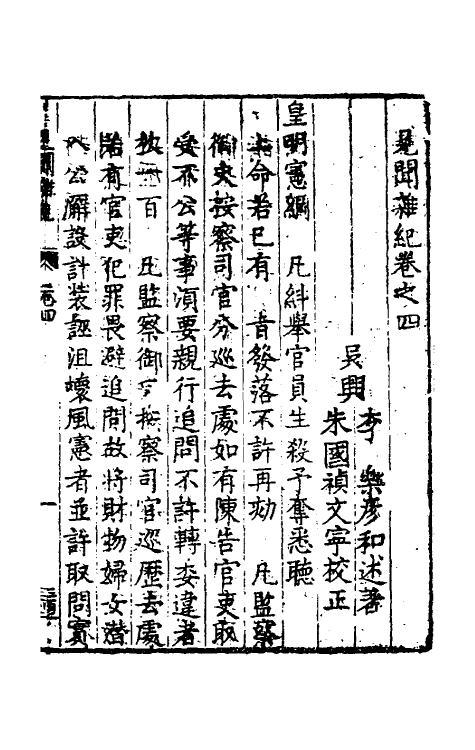 見聞雜紀卷之四
吳興
李樂彥和述著
朱國禎文寧校正
皇明憲綱 凡糾舉官員生殺予奪悉聽
命若已有 旨發落不許再劾 凡監察
御史按察司官分巡去處如有陳告官吏取
受不公等事湏要親行追問不許轉委違者
杖一百 凡監察御史按察司官巡歷去處
若有官吏犯罪畏避追問故將財物婦女潛
入公廨設計裝誣沮壞風憲者並許取問實
見聞雜紀
卷四
一